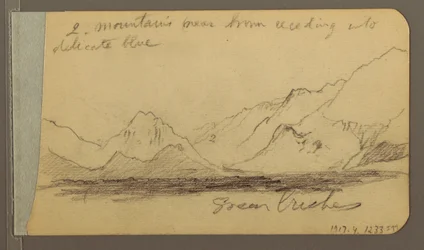 2. mountains near brown receding into
delicate blue
2
Green bushes
1917.4.1233